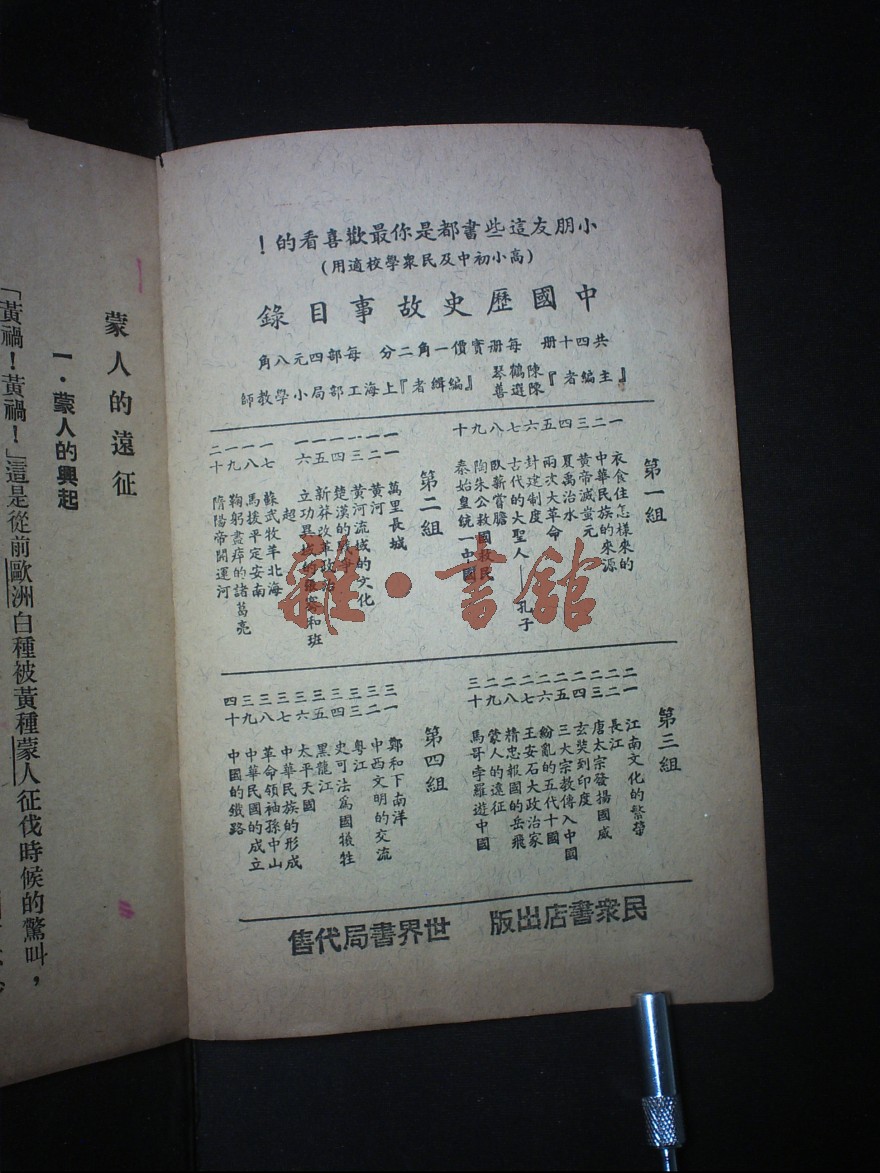 小朋友這些書都是你最歡喜看的！
(高小初中及民衆學校適用)
中國歷史故事目錄
共四十册　每册實價一角二分　每部四元八角
『主編者』陳鶴琴 陳選善『編輯者』上海工部局小學教師
第一組
一　衣食住怎樣來的
二　中華民族的來源
三　黃帝滅蚩尤
四　夏禹治水
五　兩次大革命
六　封建制度
七　古代的大聖人——孔子
八　臥薪嘗膽
九　陶朱公救國救民
十　秦始皇統一中國
第二組
一一　萬里長城
一二　黃河
一三　黃河流域的文化
一四　楚漢的戰爭
一五　新莽改革政治
一六　立功異域的張騫和班超
一七　蘇武牧羊北海
一八　馬援平定安南
一九　鞠躬盡瘁的諸葛亮
二十　隋煬帝開運河
第三組
二一　江南文化的繁榮
二二　長江
二三　唐太宗發揚國威
二四　玄奘到印度
二五　三大宗教傳入中國
二六　紛亂的五代十國
二七　王安石大政治家
二八　精忠報國的岳飛
二九　蒙人的遠征
三十　馬哥孛羅遊中國
第四組
三一　鄭和下南洋
三二　中西文明的交流
三三　粵江
三四　史可法為國犧牲
三五　黑龍江
三六　太平天國
三七　中華民族的形成
三八　革命領袖孫中山
三九　中華民國的成立
四十　中國的鐵路
民衆書店出版　世界書局代售
雜·書館
蒙人的遠征
一·蒙人的興起
「黃禍！黃禍！」這是從前歐洲白種被黃種蒙人征伐時候的驚叫，